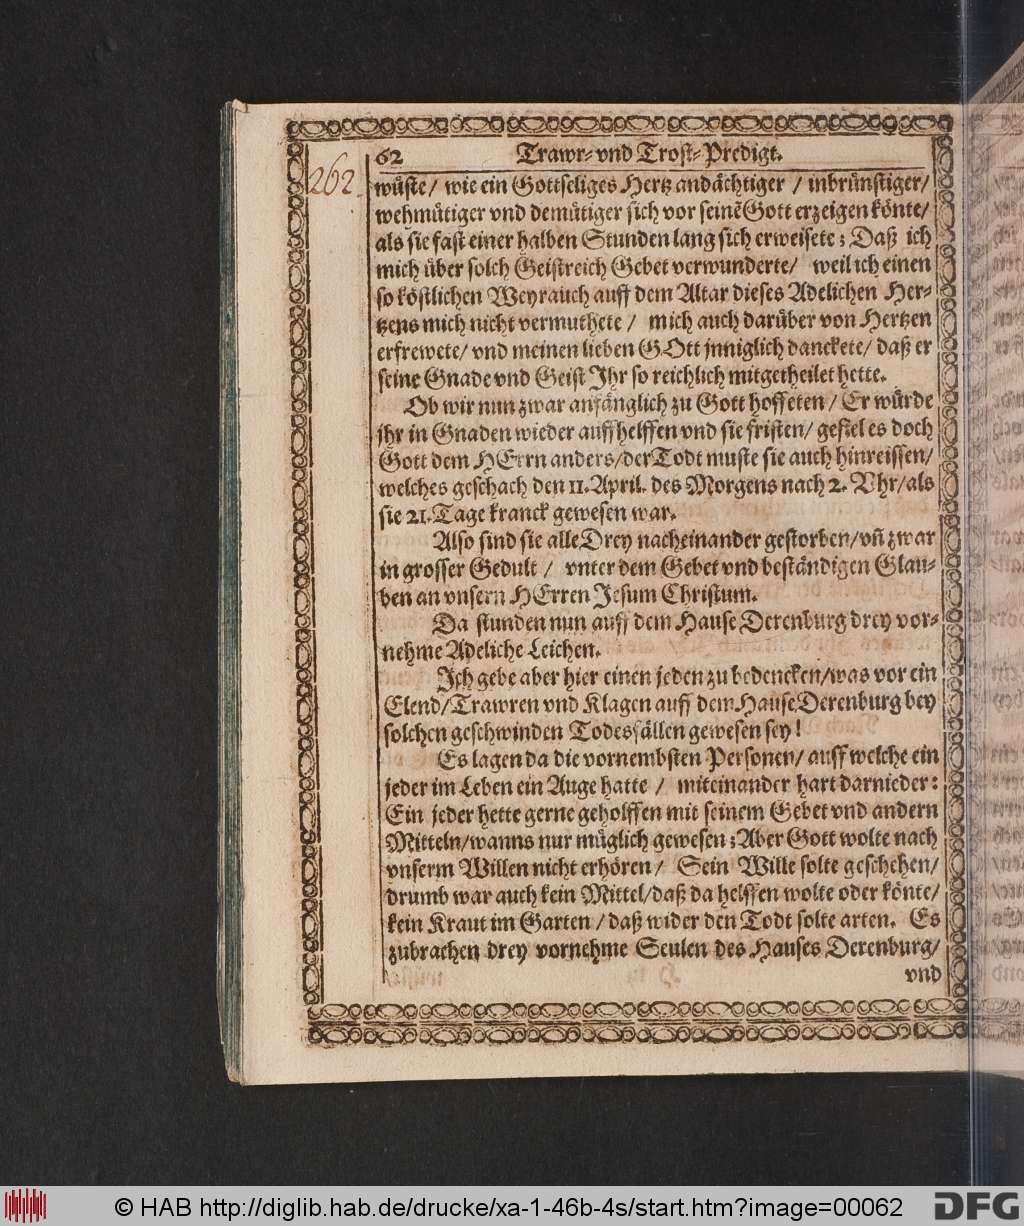 62 Trawr- vnd Trost-Predigt.
262.
wüste/ wie ein Gottseliges Hertz andächtiger / inbrünstiger/
wehmütiger vnd demütiger sich vor seinẽ Gott erzeigen könte/
als sie fast einer halben Stunden lang sich erweisete; Daß ich
mich über solch Geistreich Gebet verwunderte/ weil ich einen
so köstlichen Weyrauch auff dem Altar dieses Adelichen Her-
tzens mich nicht vermuthete / mich auch darüber von Hertzen
erfrewete/ vnd meinen lieben GOtt jnniglich danckete/ daß er
seine Gnade vnd Geist Jhr so reichlich mitgetheilet hette.
Ob wir nun zwar anfänglich zu Gott hoffeten / Er würde
jhr in Gnaden wieder auffhelffen vnd sie fristen/ gefiel es doch
Gott dem HErrn anders/der Todt muste sie auch hinreissen/
welches geschach den 11. April. des Morgens nach 2. Vhr/als
sie 21. Tage kranck gewesen war.
Also sind sie alle Drey nacheinander gestorben/vñ zwar
in grosser Gedult / vnter dem Gebet vnd beständigen Glau-
ben an vnsern HErren Jesum Christum.
Da stunden nun auff dem Hause Derenburg drey vor-
nehme Adeliche Leichen.
Jch gebe aber hier einen jeden zu bedencken/was vor ein
Elend/Trawren vnd Klagen auff dem Hause Derenburg bey
solchen geschwinden Todesfällen gewesen sey!
Es lagen da die vornembsten Personen/ auff welche ein
jeder im Leben ein Auge hatte / miteinander hart darnieder:
Ein jeder hette gerne geholffen mit seinem Gebet vnd andern
Mitteln/wanns nur müglich gewesen; Aber Gott wolte nach
vnserm Willen nicht erhören / Sein Wille solte geschehen/
drumb war auch kein Mittel/daß da helffen wolte oder könte/
kein Kraut im Garten / daß wider den Todt solte arten. Es
zubrachen drey vornehme Seulen des Hauses Derenburg/
vnd
© HAB http://diglib.hab.de/drucke/xa-1-46b-4s/start.htm?image=00062
DFG